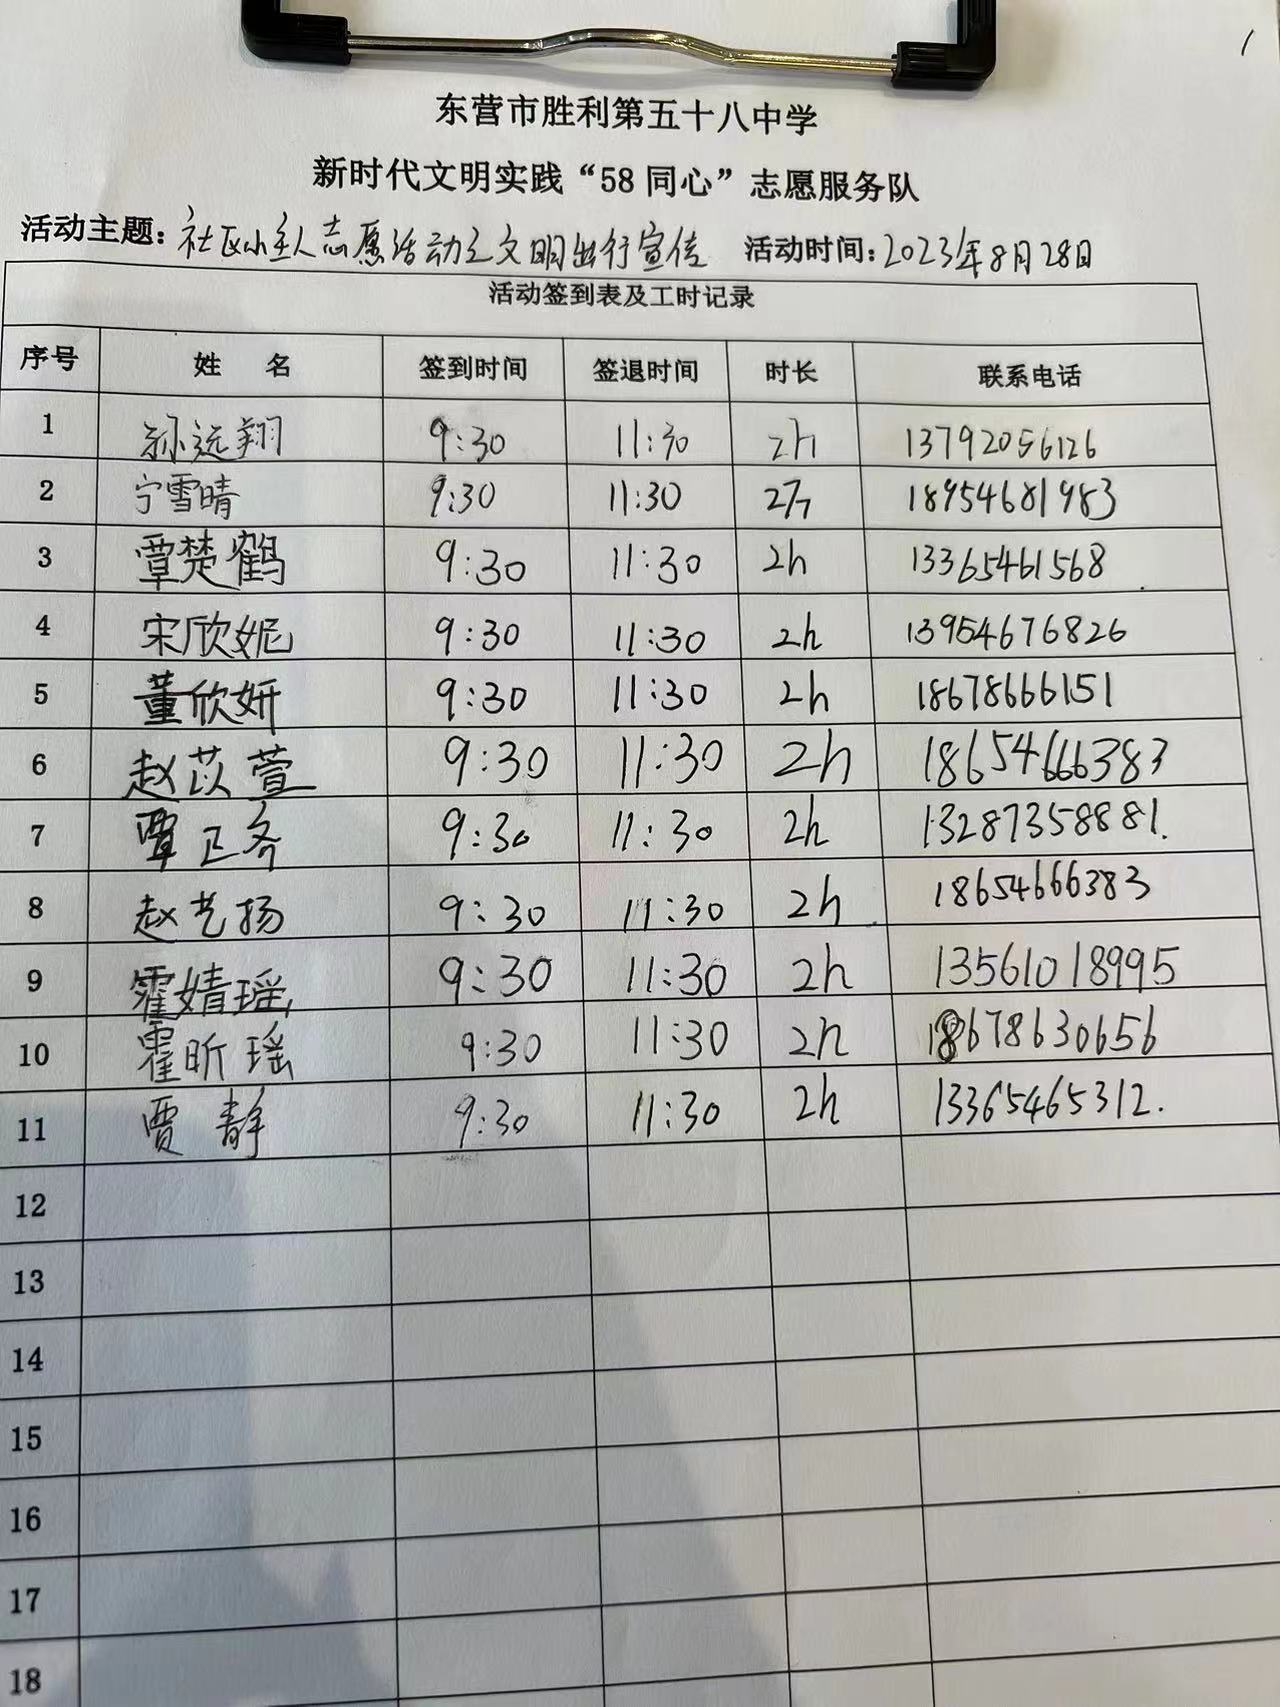 东营市胜利第五十八中学
新时代文明实践“58 同心”志愿服务队
活动主题: 社区小主人志愿活动之文明出行宣传 活动时间: 2023年8月28日
活动签到表及工时记录
序号 姓 名 签到时间 签退时间 时长 联系电话
1 孙远翔 9:30 11:30 2h 13792056126
2 宁雪晴 9:30 11:30 2h 18954681983
3 覃楚鹤 9:30 11:30 2h 13365461568
4 宋欣妮 9:30 11:30 2h 13954676826
5 董欣妍 9:30 11:30 2h 18678666151
6 赵苡萱 9:30 11:30 2h 18654666383
7 覃正齐 9:30 11:30 2h 13287358881.
8 赵艺扬 9:30 11:30 2h 18654666383
9 霍婧瑶 9:30 11:30 2h 13561018995
10 霍昕瑶 9:30 11:30 2h 18678630656
11 贾静 9:30 11:30 2h 13365465312.
12
13
14
15
16
17
18